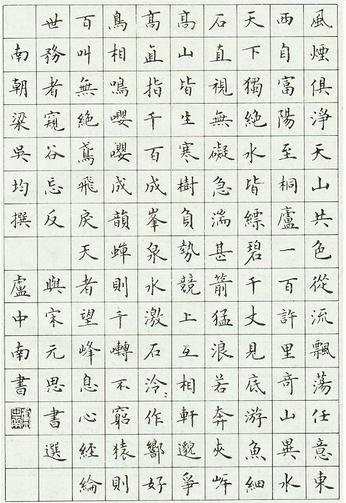 風煙俱淨天山共色從流飄蕩任意東
西自富陽至桐廬一百許里奇山異水
天下獨絕水皆縹碧千丈見底游魚細
石直視無礙急湍甚箭猛浪若奔夾岸
高山皆生寒樹負勢競上互相軒邈爭
高直指千百成峯泉水激石泠々作響好
鳥相鳴嚶嚶成韻蟬則千囀不窮猿則
百叫無絕鳶飛戾天者望峰息心經綸
世務者窺谷忘反 與宋元思書選
南朝梁吳均撰 盧中南書